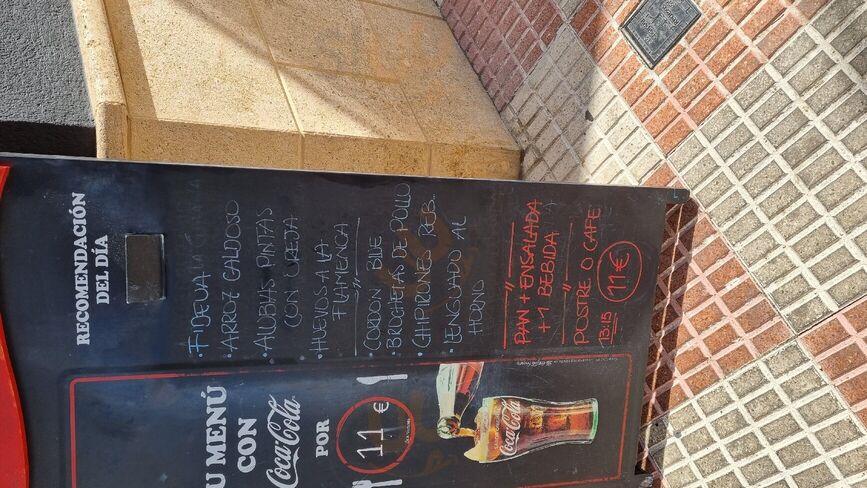 RECOMENDACIÓN
DEL DÍA
· FIDEUA
· ARROZ CALDOSO
· ALUBIAS PINTAS
CON OREJA
· HUEVOS A LA
FLAMENCA
· CORDON BLUE
· BROCHETAS DE POLLO
· CHIPIRONES REB.
· LENGUADO AL
HORNO
PAN + ENSALADA
+ 1 BEBIDA
POSTRE O CAFE
13:15 11€
U MENÚ
CON
Coca-Cola
POR
11 €
Coca-Cola